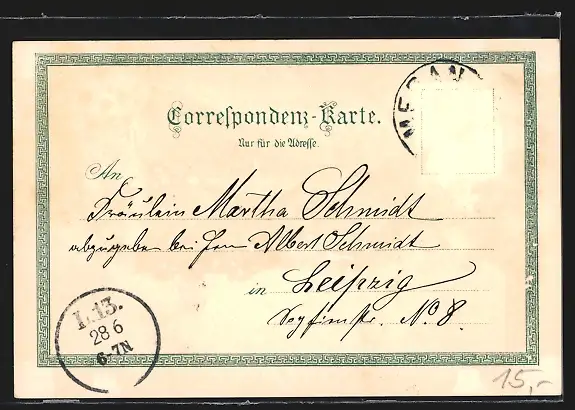 MERAN
Correspondenz-Karte.
Nur für die Adresse.
An
Fräulein Martha Schmidt
abzugeben bei Herrn Albert Schmidt
in Leipzig
No. 8.
L.13.
28 6
6-7N
15,-